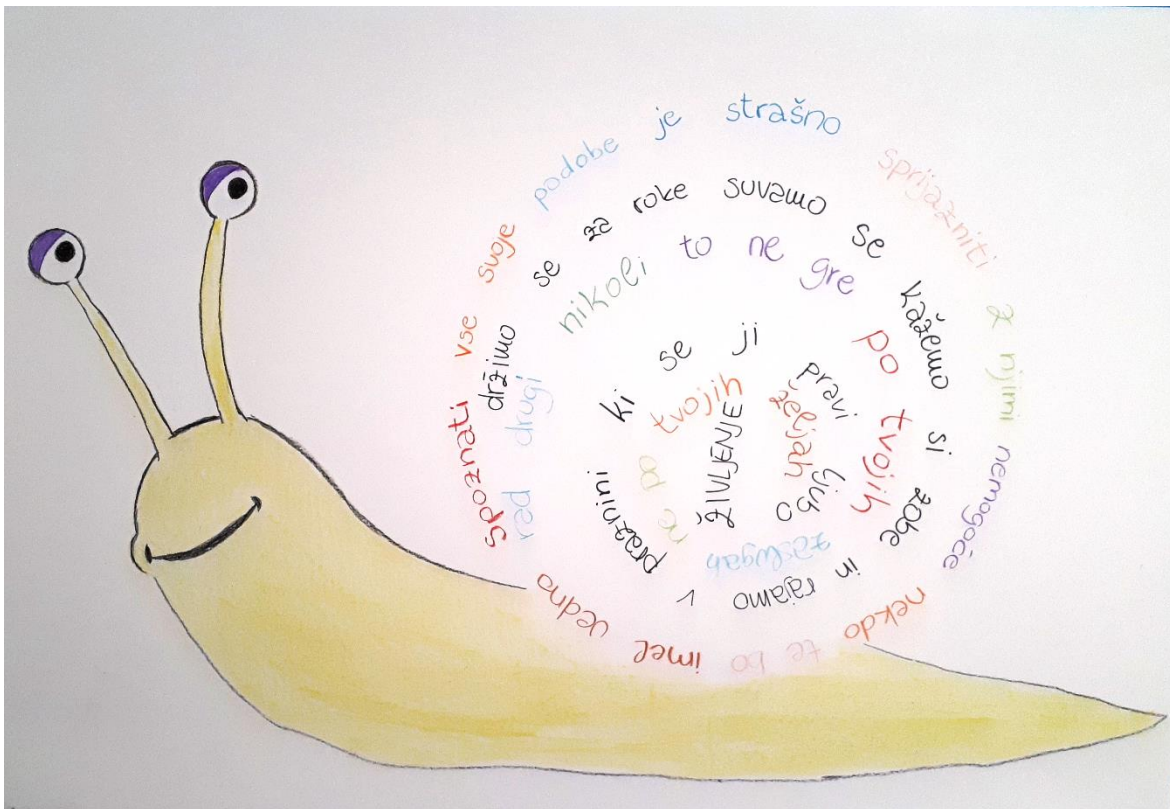 Spoznati vse svoje podobe je strašno sprijazniti z njimi nemogoče nekdo te bo imel vedno rad drugi nikoli to ne gre po tvojih zaslugah po tvojih željah
držimo se za roke suvamo se kažemo si zobe in rajamo v praznini ki se ji pravi ljubo ŽIVLJENJE